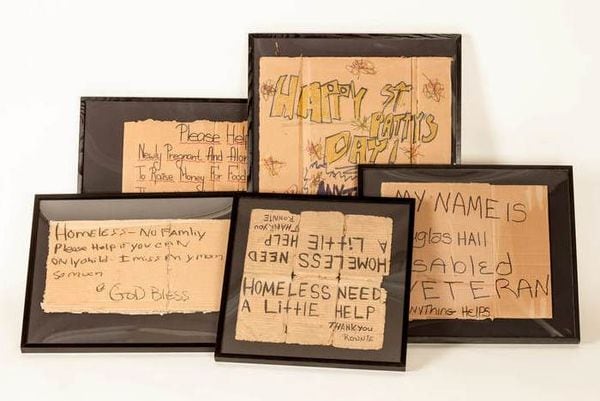 Please Hel
Newly Pregnant And Alon
To Raise Money For Food
HAPPY ST
PATTYS
DAY!
MY NAME IS
uglas HALL
sabled
VETERAN
ANYTHING HELPS
HomeLess - No Familiy
Please Help if you can
only child - I miss my mom
so much
GOD Bless
HOMELESS NEED
A LittlE HELP
THANK YOU
RONNIE
HOMELESS NEED
A LittlE HELP
THANK you
RONNIE